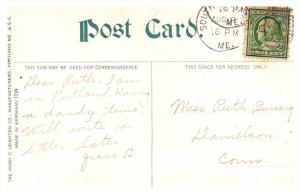 Post Card.
16 PM
ME.
THIS SPACE MAY BE USED FOR CORRESPONDENCE
THIS SPACE FOR ADDRESS ONLY.
THE HUGH C. LEIGHTON CO., MANUFACTURERS, PORTLAND, ME., U.S.A.
MADE IN GERMANY
Dear Ruth: I am
in Portland Having
a dandy time.
Will write a
letter later
Grace B.
Miss Ruth
Danielson
Conn.